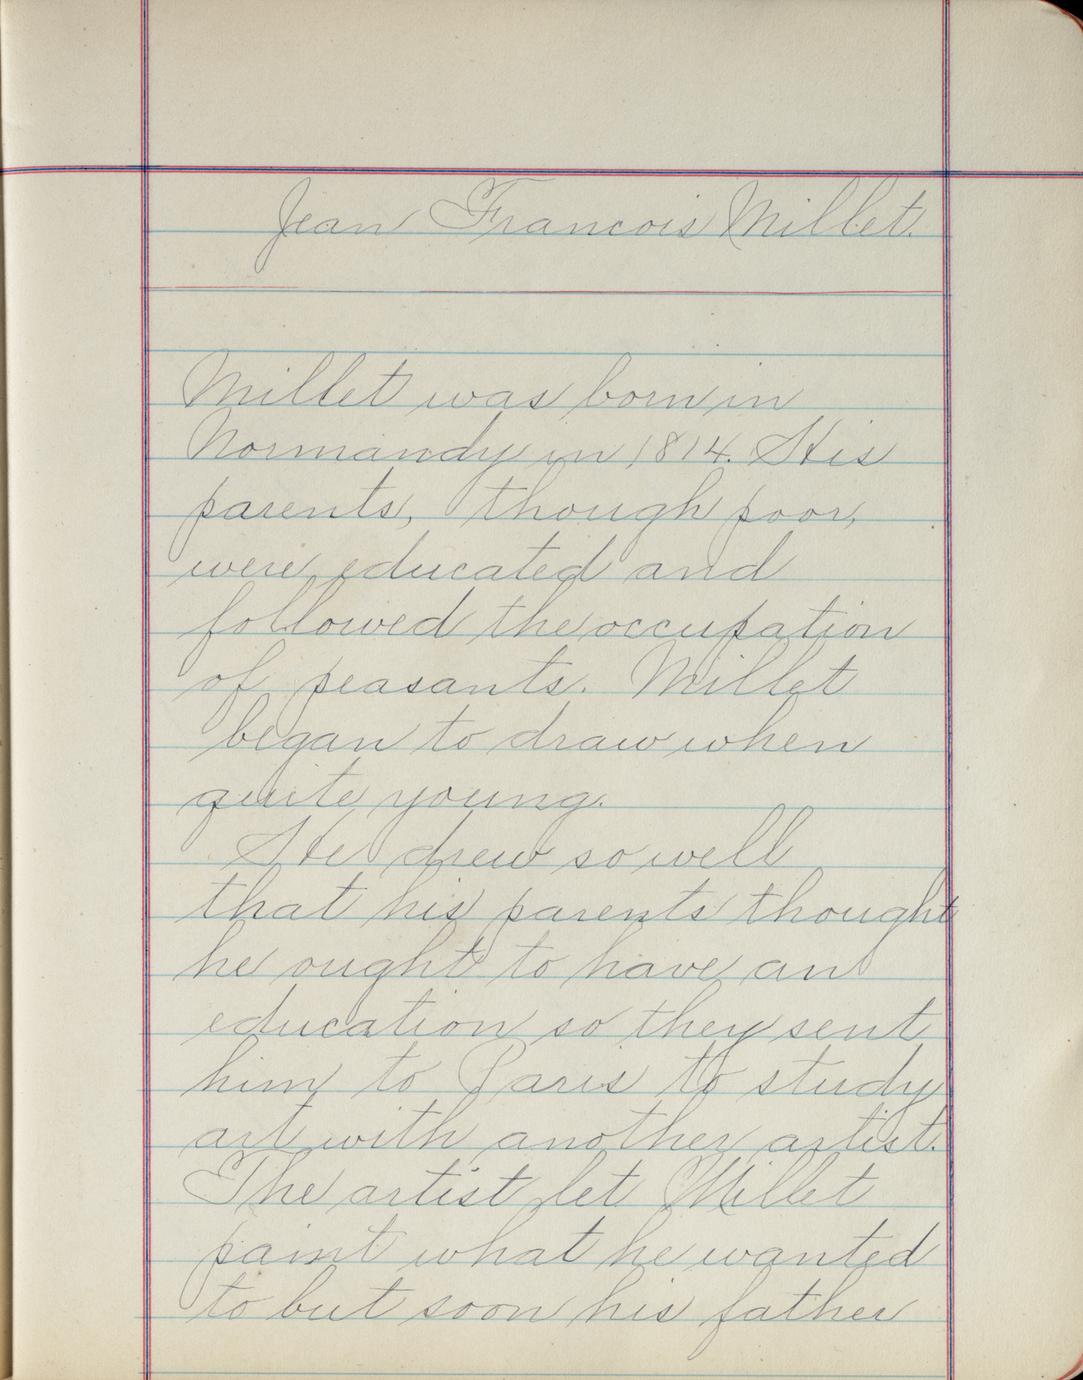 Jean Francois Millet.
Millet was born in
Normandy in 1814. His
parents, though poor,
were educated and
followed the occupation
of peasants. Millet
began to draw when
quite young.
He drew so well
that his parents thought
he ought to have an
education so they sent
him to Paris to study
art with another artist.
The artist let Millet
paint what he wanted
to but soon his father